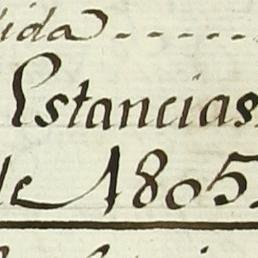 ida -----
Estancias
de 1805.